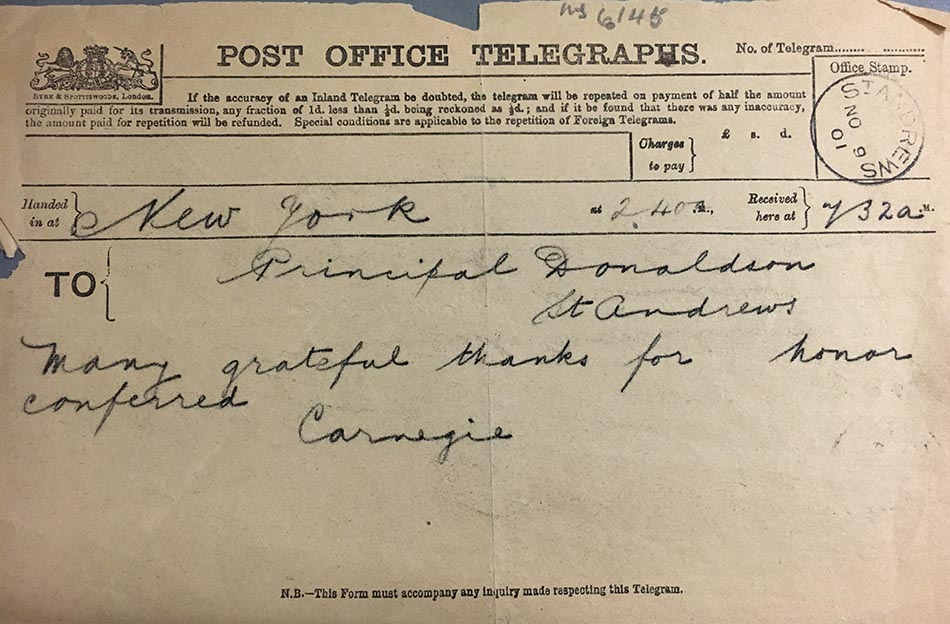 ms 6145
POST OFFICE TELEGRAPHS.
No. of Telegram
Office Stamp.
EYRE & SPOTTISWOODE, London.
If the accuracy of an Inland Telegram be doubted, the telegram will be repeated on payment of half the amount
originally paid for its transmission, any fraction of 1d. less than ½d. being reckoned as ½d.; and if it be found that there was any inaccuracy,
the amount paid for repetition will be refunded. Special conditions are applicable to the repetition of Foreign Telegrams.
ST ANDREWS
NO 9
01
Charges
to pay
£ s. d.
Handed
in at
New York
at 2.40
M.,
Received
here at
7 32a M.
TO
Principal Donaldson
St Andrews
Many grateful thanks for honor
conferred
Carnegie
N.B.—This Form must accompany any inquiry made respecting this Telegram.